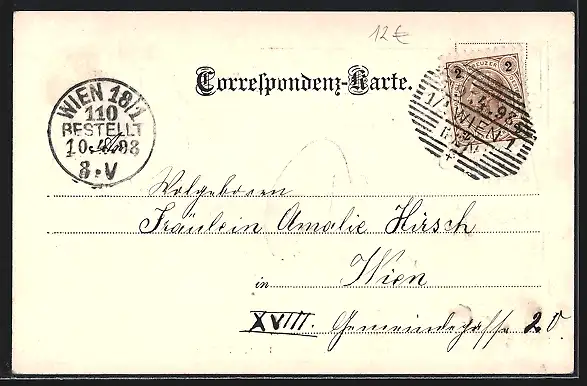 12€
Correspondenz-Karte.
2 KREUZER 2
WIEN 18/1
110
BESTELLT
10. 98
8·V
1/1 WIEN 1
Wolgeboren
Fräulein Amalie Hirsch
in Wien
XVIII. Gemeindegasse 20